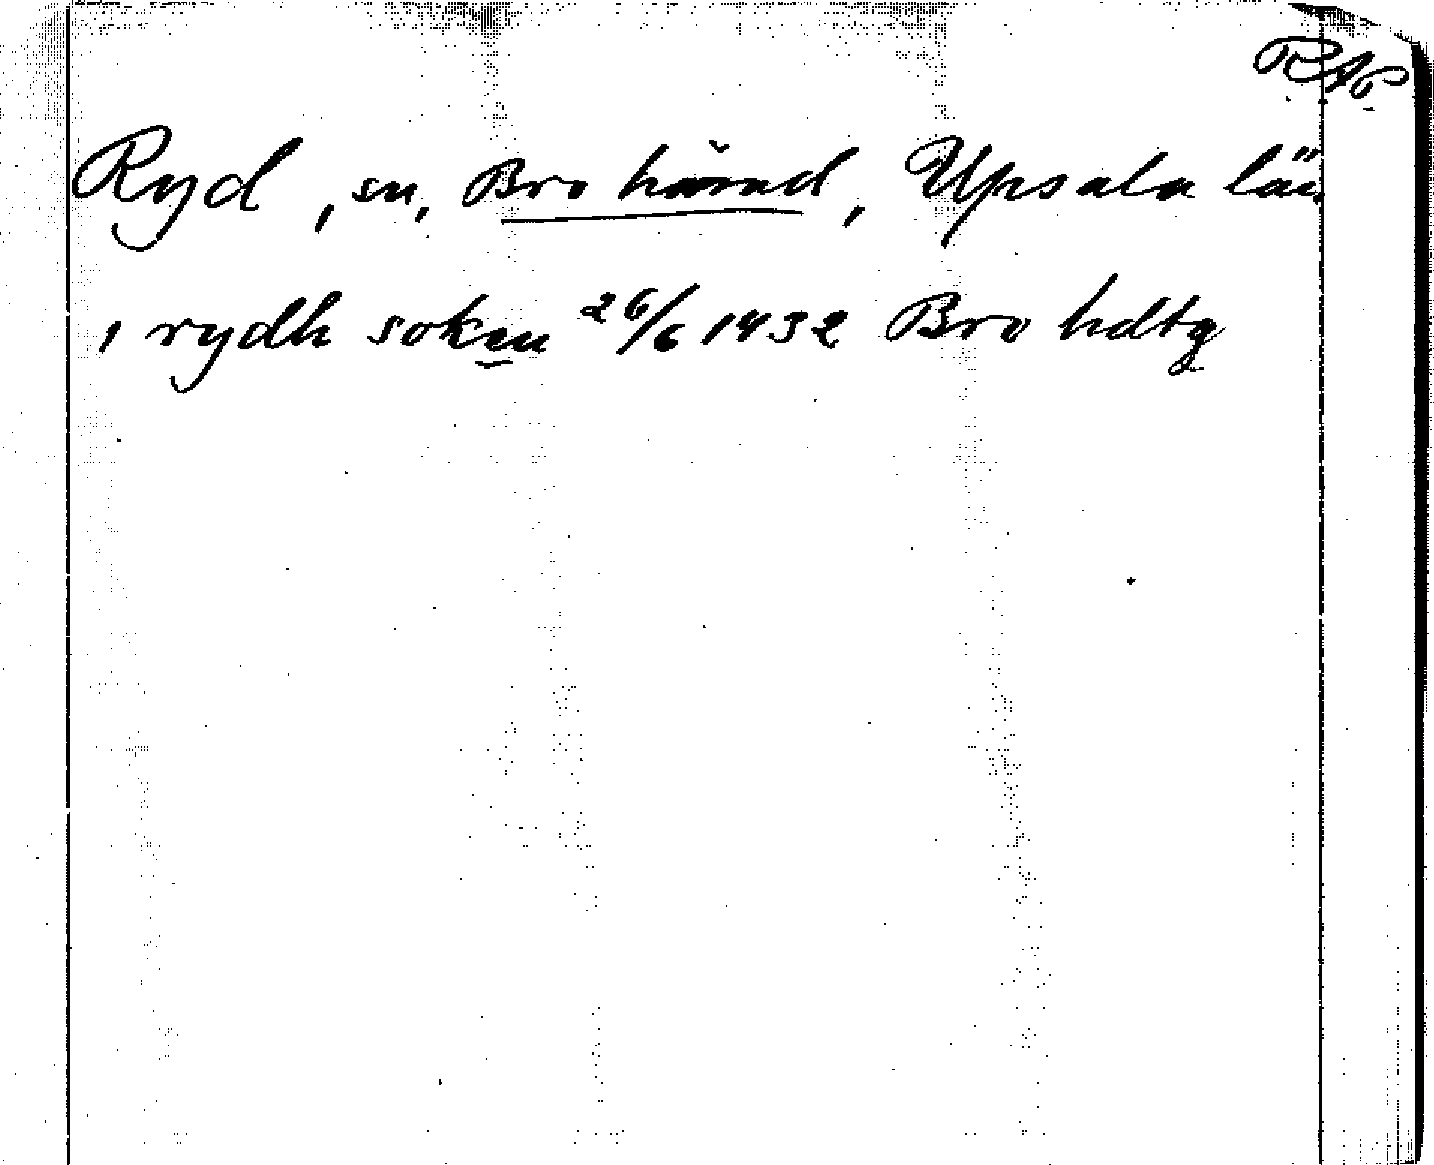 RAp
Ryd, sn, Bro härad, Upsala län
i rydh soken 26/6 1432 Bro hdtg